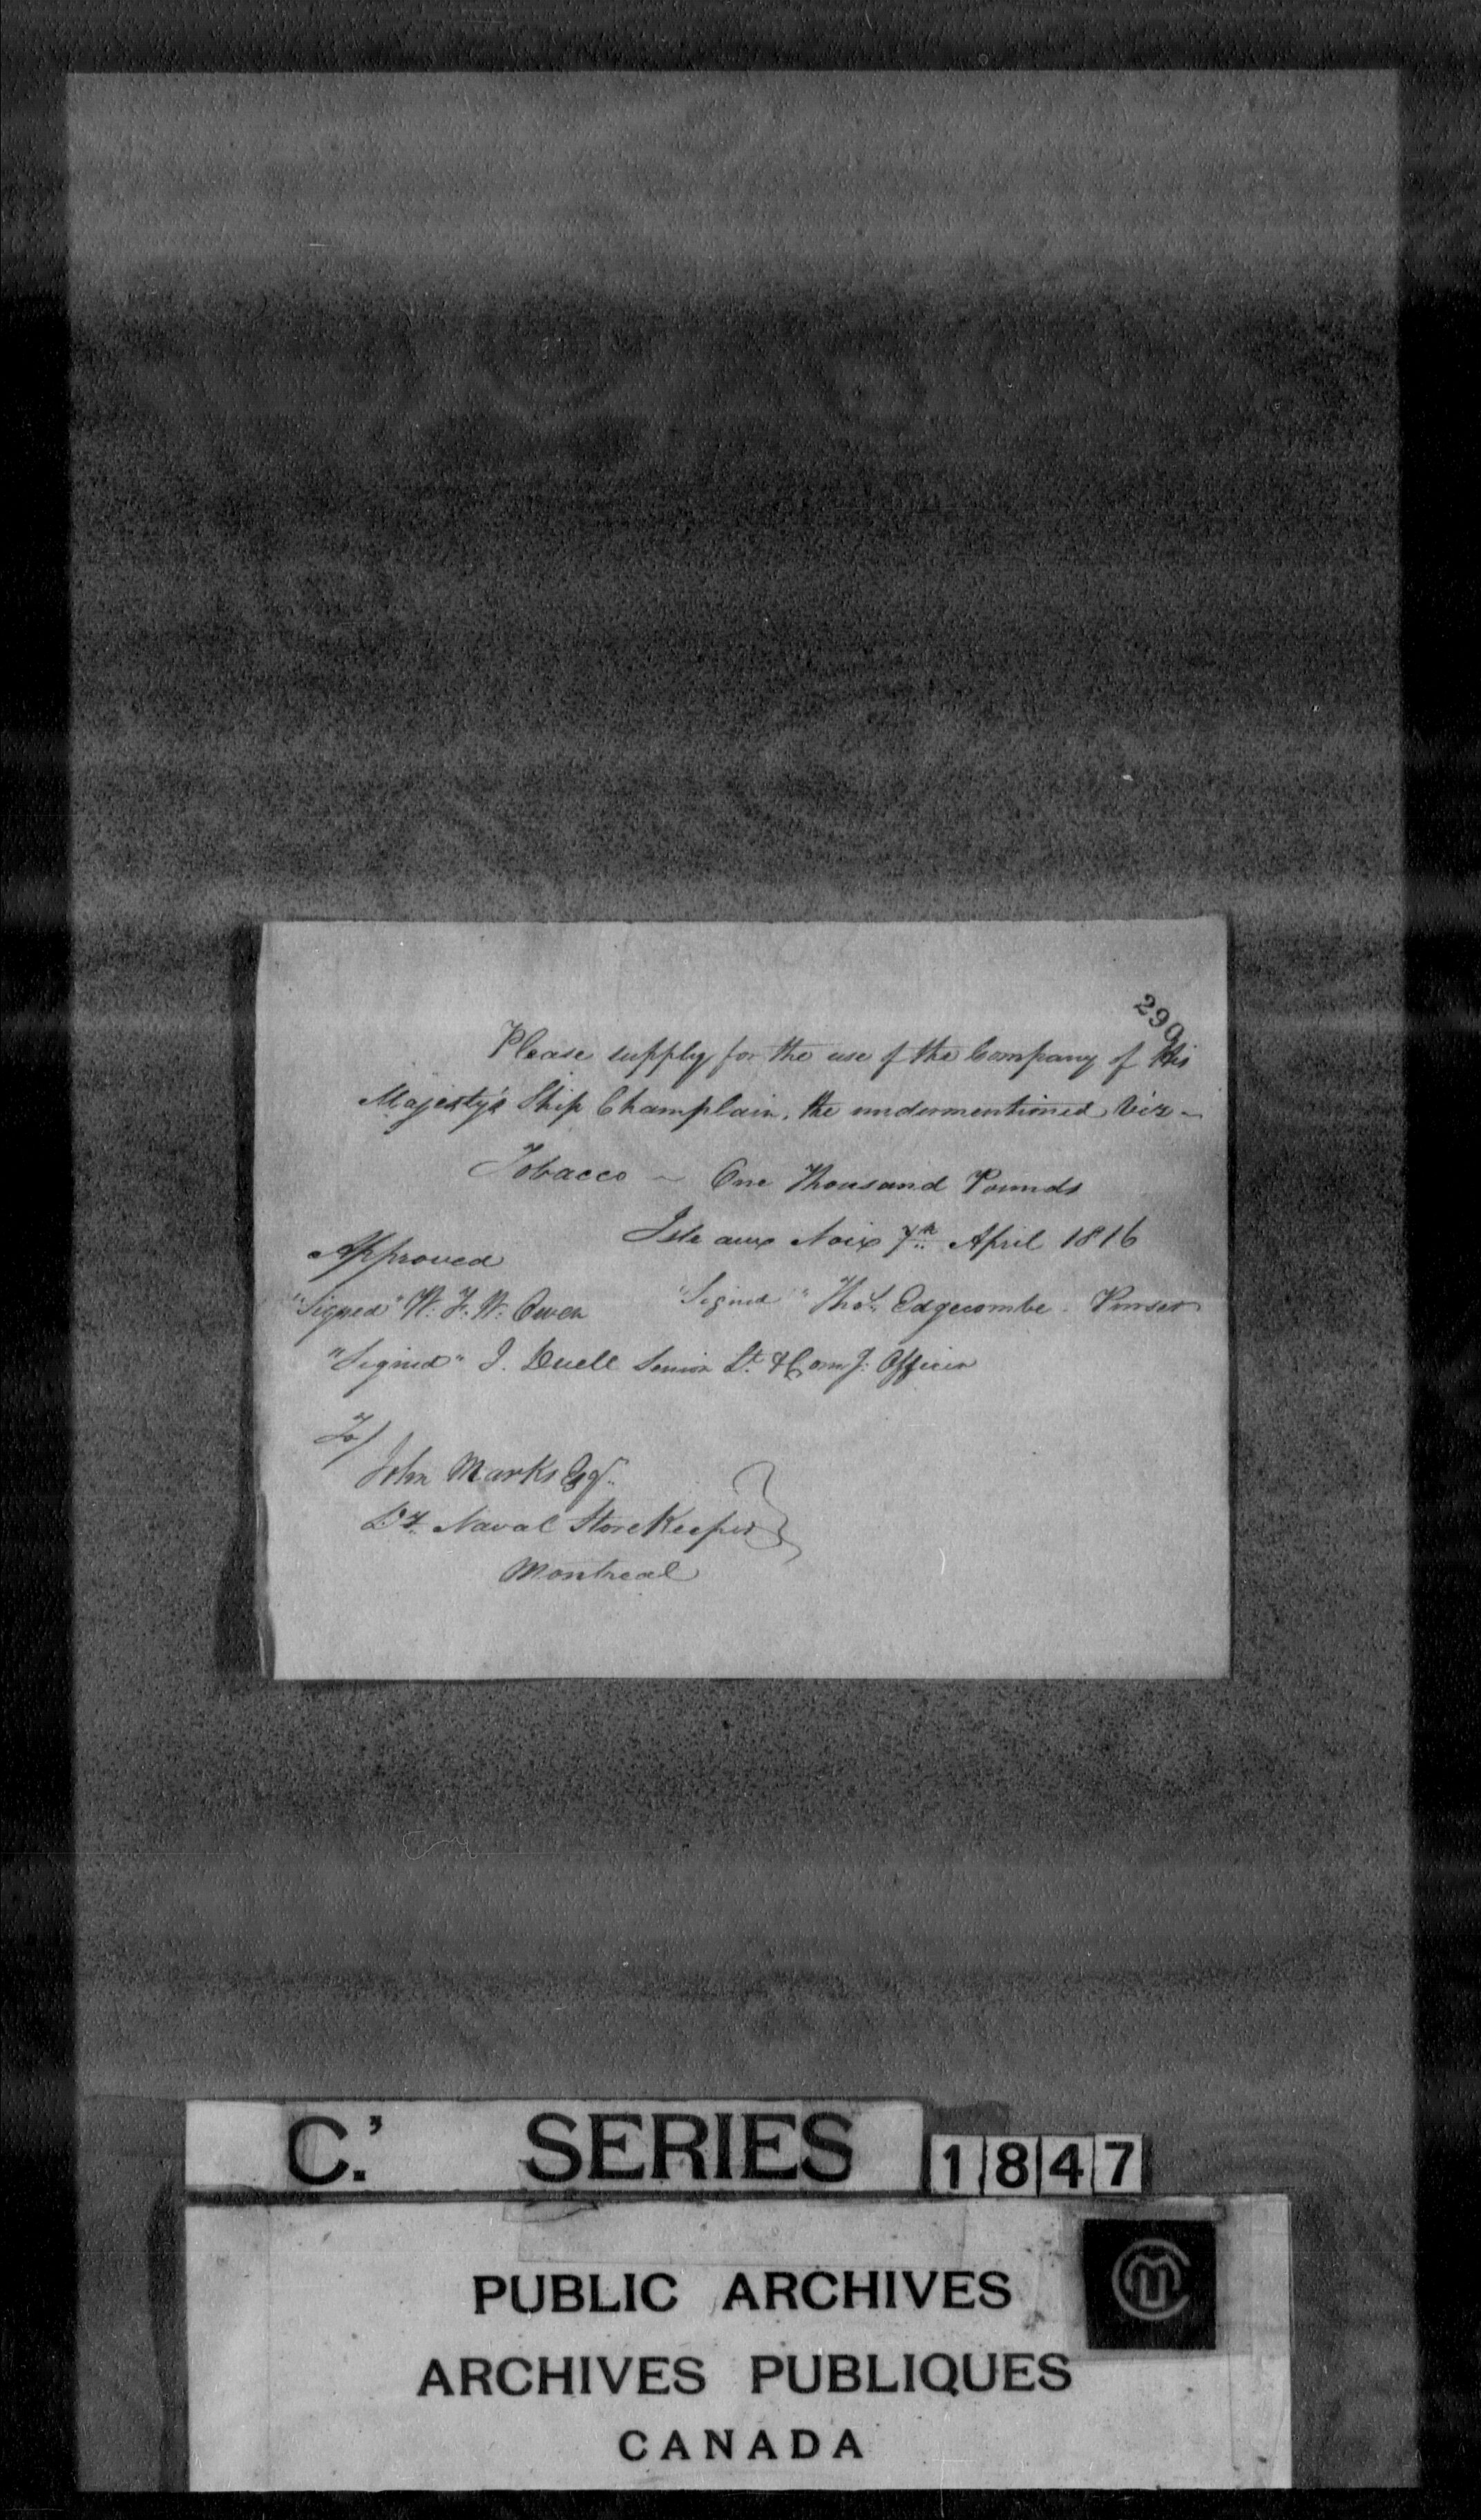 290
Please supply for the use of the Company of His
Majesty's Ship Champlain, the undermentioned Viz -
Tobacco ~ One Thousand Pounds
Isle aux Noix 7th April 1816
Approved
"Signed" W. F. W. Owen
"Signed" Thos. Edgecombe. Purser
"Signed" J. Duell Senior Lt. & Comg. Officer
To/
John Marks Esqr.
Dy. Naval StoreKeeper
Montreal
C.' SERIES 1847
PUBLIC ARCHIVES
ARCHIVES PUBLIQUES
CANADA